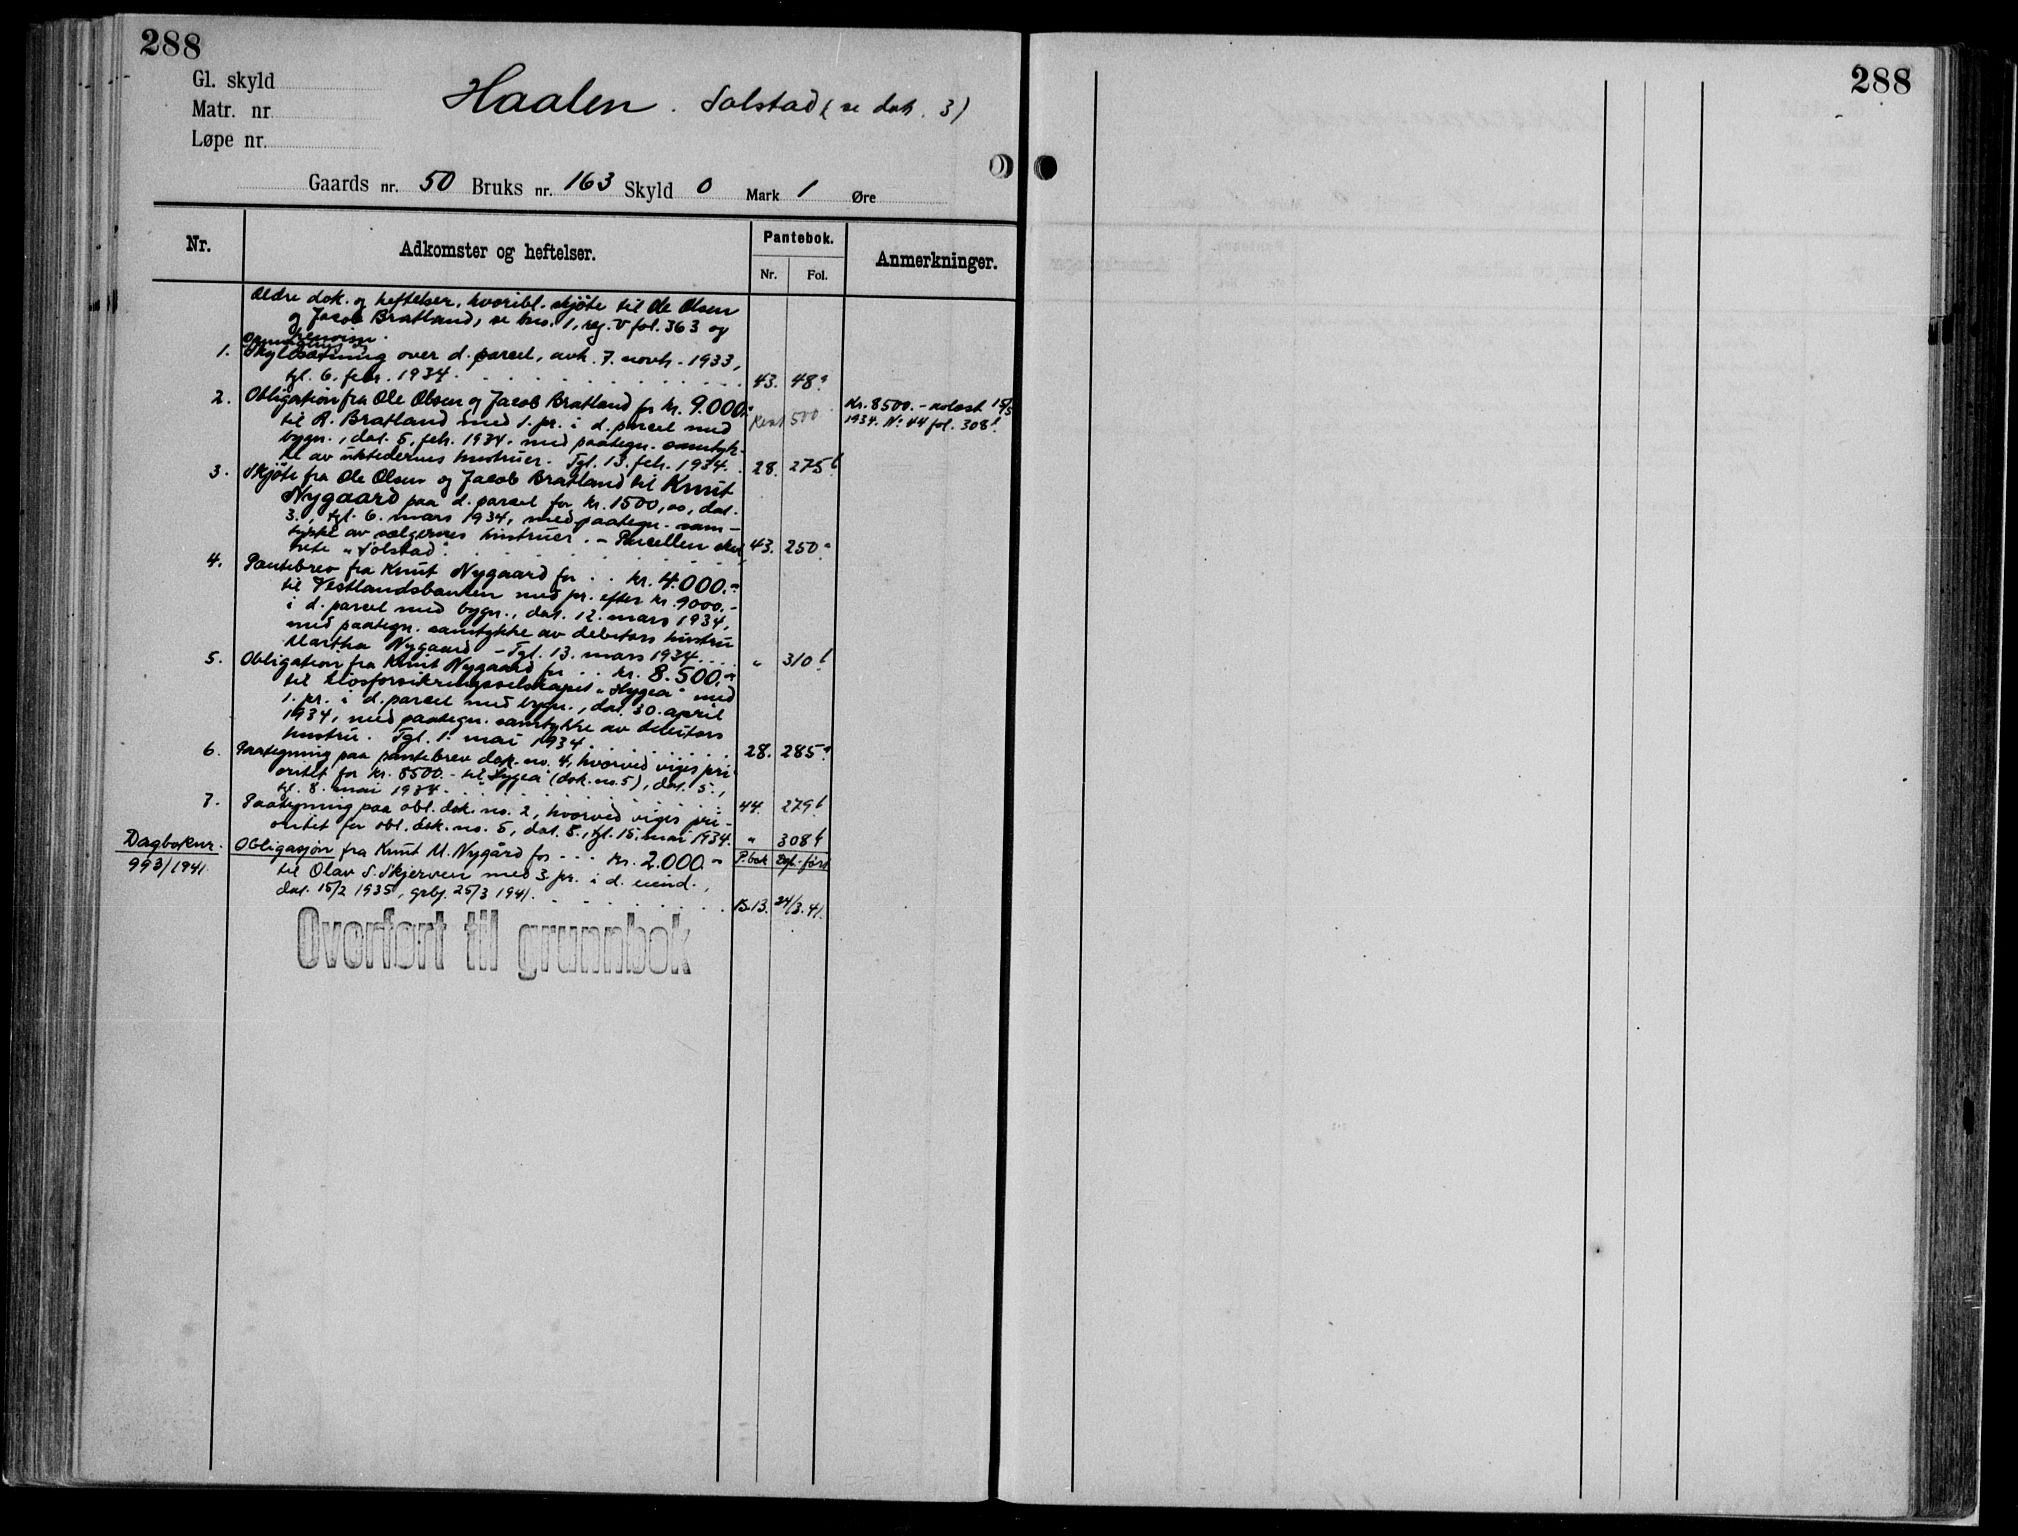 288
288
Gl. skyld
Matr. nr.
Løpe nr.
Haalen. Solstad (se dok. 3)
Gaards nr. 50 Bruks nr. 163 Skyld 0 Mark 1 Øre
Nr. Adkomster og heftelser. Pantebok. Anmerkninger.
Nr. Fol.
Ældre dok. og heftelser, hvoribl. skjøte til Ole Olsen
og Jacob Bratland, se bns. 1, reg. V fol. 363 og
1. Skyldsætning over d. parcel, avh. 7. novb. 1933,
tgl. 6. febr. 1934. 43. 48a
2. Obligation fra Ole Olsen og Jacob Bratland for kr. 9.000.-
til A. Bratland med 1. pr. i d. parcel med Rest 500 Kr. 8500.- avlest 15/5
bygn., dat. 5. feb. 1934. med paategn. samtyk- 1934. N: 44 fol. 308b.
ke av utstedernes hustruer. Tgl. 13. feb. 1934. 28. 275b
3. Skjøte fra Ole Olsen og Jacob Bratland til Knut
Nygaard paa d. parcel for kr. 1500,00, dat.
3., tgl. 6. mars 1934, med paategn. sam-
tykke av sælgernes hustruer. - Parcellen skal
hete "Solstad". 43. 250a
4. Pantebrev fra Knut Nygaard for .. kr. 4.000.-
til Vestlandsbanken med pr. efter kr. 9000.-
i d. parcel med bygn., dat. 12. mars 1934,
med paategn. samtykke av debitors hustru
Martha Nygaard - Tgl. 13. mars 1934. " 310b
5. Obligation fra Knut Nygaard for .. kr. 8.500.-
til Livsforsikringsselskapet "Hygea" med
1. pr. i d. parcel med bygn., dat. 30. april
1934, med paategn. samtykke av debitors
hustru. Tgl. 1. mai 1934. 28. 285a
6. Paategning paa pantebrev dok. no. 4, hvorved viges pri-
oritet for kr. 8500.- til "Hygea" (dok. no. 5), dat. 5.,
tgl. 8. mai 1934. 44. 279b
7. Paategning paa obl. dok. no. 2, hvorved viges pri-
oritet for obl. dok. no. 5, dat. 8., tgl. 15. mai 1934. " 308b
Dagboknr. Obligasjon fra Knut M. Nygård for ... kr. 2.000.- P.bok Dgl.-ført
993/1941. til Olav S. Skjerven med 3 pr. i d. eiend.,
dat. 15/2 1935, grbf. 25/3 1941. B.13. 24/3.41.
Overført til grunnbok